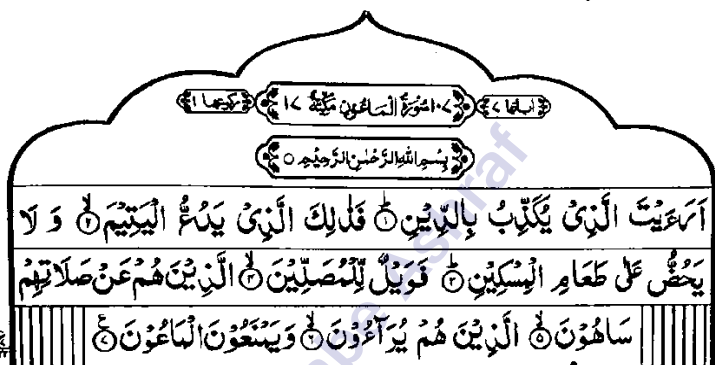 اٰیاتها ٧ ١٠٧ سُوْرَةُ الْمَاعُوْنِ مَكِّيَّةٌ ١٧ رکوعها ١
بِسْمِ اللهِ الرَّحْمٰنِ الرَّحِيْمِ ○
اَرَءَيْتَ الَّذِىْ يُكَذِّبُ بِالدِّيْنِ ؕ۝١ فَذٰلِكَ الَّذِىْ يَدُعُّ الْيَتِيْمَ ۙ۝٢ وَ لَا
يَحُضُّ عَلٰى طَعَامِ الْمِسْكِيْنِ ؕ۝٣ فَوَيْلٌ لِّلْمُصَلِّيْنَ ۙ۝٤ الَّذِيْنَ هُمْ عَنْ صَلَاتِهِمْ
سَاهُوْنَ ۙ۝٥ الَّذِيْنَ هُمْ يُرَآءُوْنَ ۙ۝٦ وَيَمْنَعُوْنَ الْمَاعُوْنَ ۝٧ ع
Ashraf